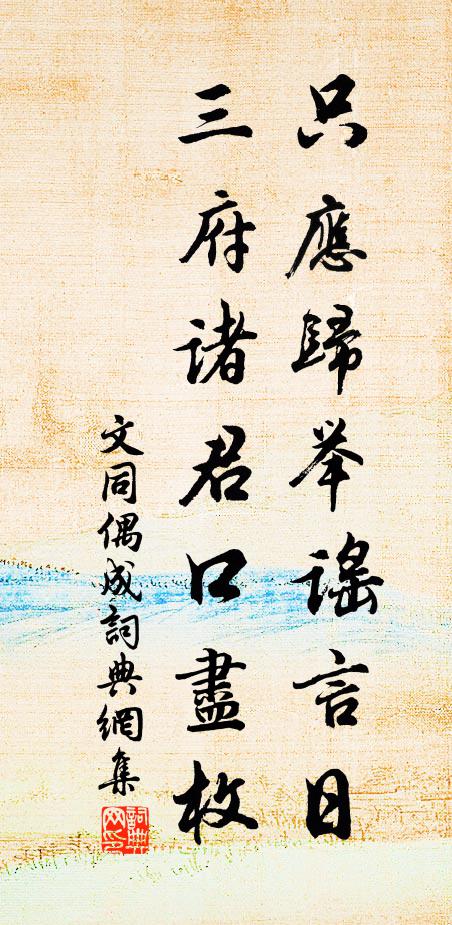 只應歸举謡言日
三府諸君口盡枚
文同偶成詞典網集
詞典网印